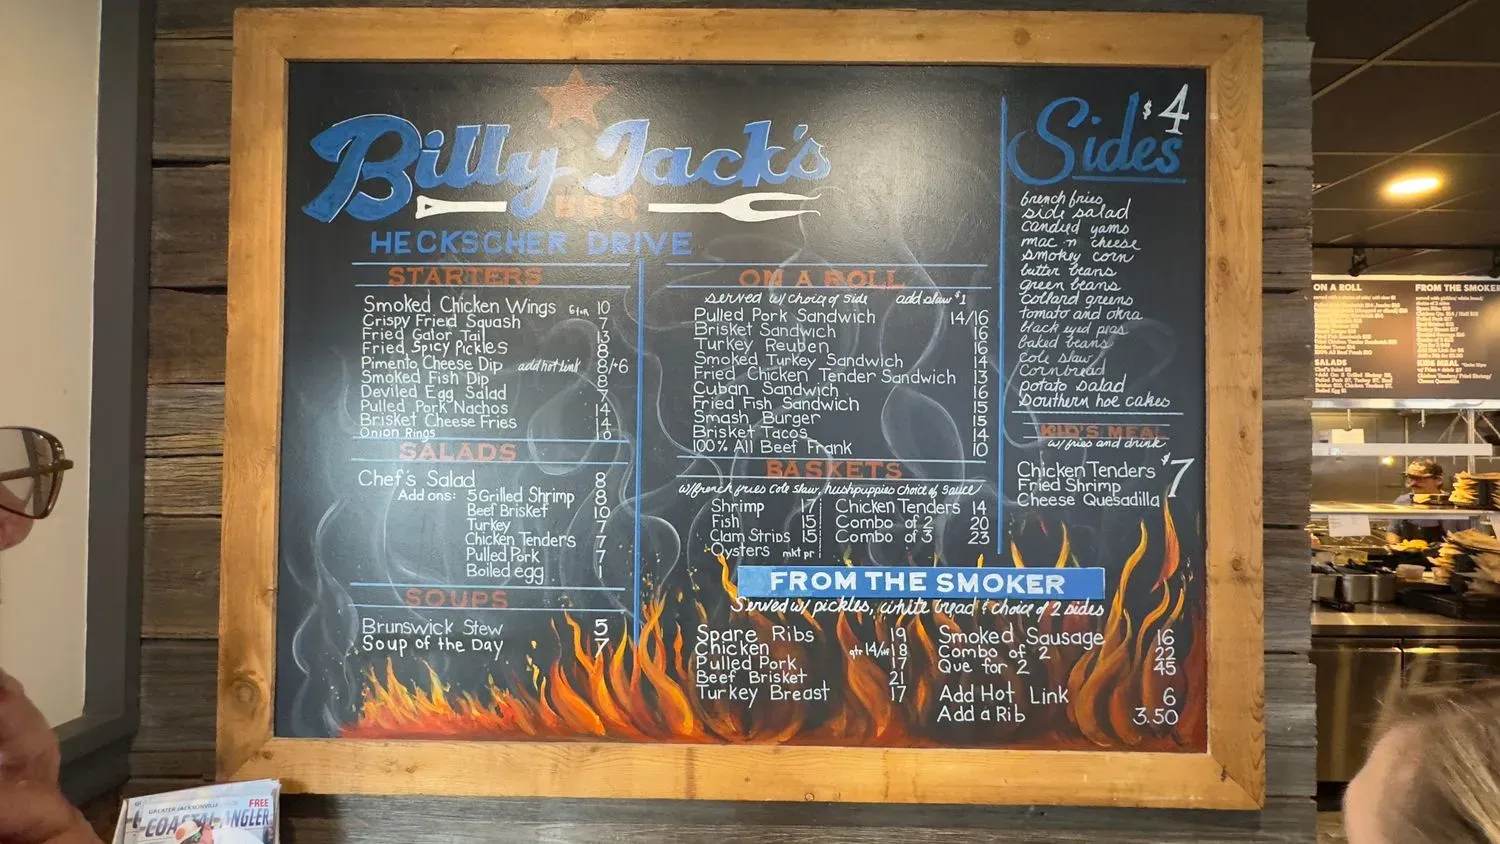 Billy Jack's
BBQ
HECKSCHER DRIVE
STARTERS
Smoked Chicken Wings 6 for 10
Crispy Fried Squash 7
Fried Gator Tail 13
Fried Spicy Pickles 8
Pimento Cheese Dip add hot link 8/+6
Smoked Fish Dip 8
Deviled Egg Salad 7
Pulled Pork Nachos 14
Brisket Cheese Fries 14
Onion Rings
SALADS
Chef's Salad 8
Add ons: 5 Grilled Shrimp 8
Beef Brisket 10
Turkey 7
Chicken Tenders 7
Pulled Pork 7
Boiled egg 1
SOUPS
Brunswick Stew 5
Soup of the Day 7
ON A ROLL
served w/ choice of side add slaw $1
Pulled Pork Sandwich 14/16
Brisket Sandwich 16
Turkey Reuben 16
Smoked Turkey Sandwich 14
Fried Chicken Tender Sandwich 13
Cuban Sandwich 16
Fried Fish Sandwich 15
Smash Burger 15
Brisket Tacos 14
100% All Beef Frank 10
BASKETS
w/french fries cole slaw, hushpuppies choice of sauce
Shrimp 17
Fish 15
Clam Strips 15
Oysters mkt pr
Chicken Tenders 14
Combo of 2 20
Combo of 3 23
FROM THE SMOKER
Served w/ pickles, white bread & choice of 2 sides
Spare Ribs 19
Chicken qtr 14/ 18
Pulled Pork 17
Beef Brisket 21
Turkey Breast 17
Smoked Sausage 16
Combo of 2 22
Que for 2 45
Add Hot Link 6
Add a Rib 3.50
Sides $4
french fries
side salad
candied yams
mac n cheese
smokey corn
butter beans
green beans
collard greens
tomato and okra
black eyed peas
baked beans
cole slaw
cornbread
potato salad
southern hoe cakes
KID'S MEAL
w/ fries and drink
Chicken Tenders $7
Fried Shrimp
Cheese Quesadilla
ON A ROLL
FROM THE SMOKER
SALADS
KIDS MEAL
GREATER JACKSONVILLE
FREE
COASTAL ANGLER